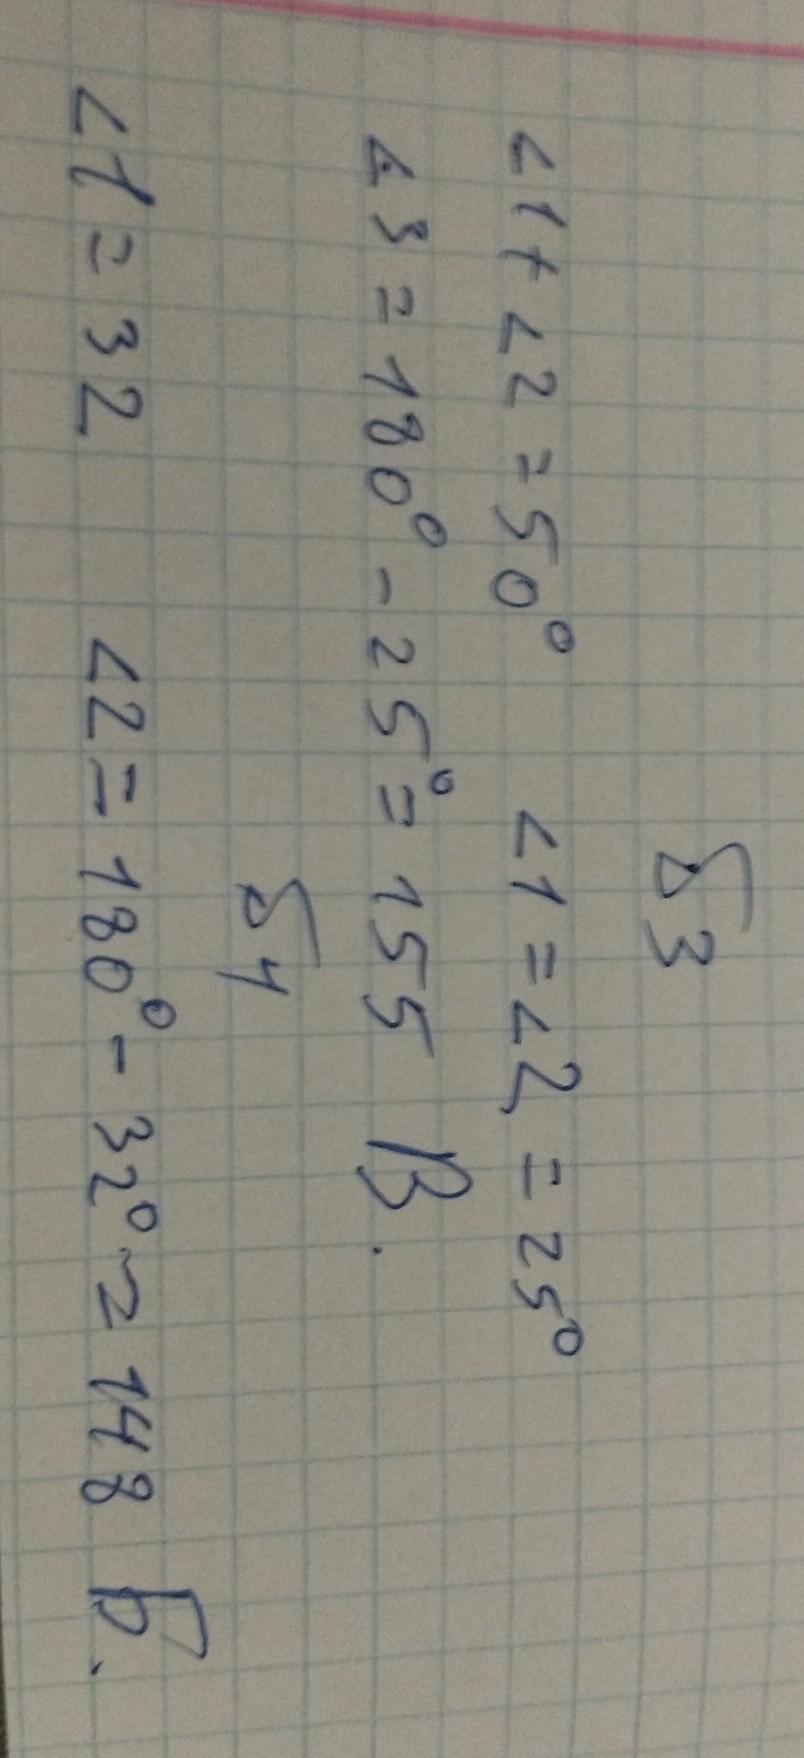 б3
∠1+∠2=50° ∠1=∠2=25°
∠3=180°-25°=155 В.
б4
∠1=32 ∠2=180°-32°=148 Б.